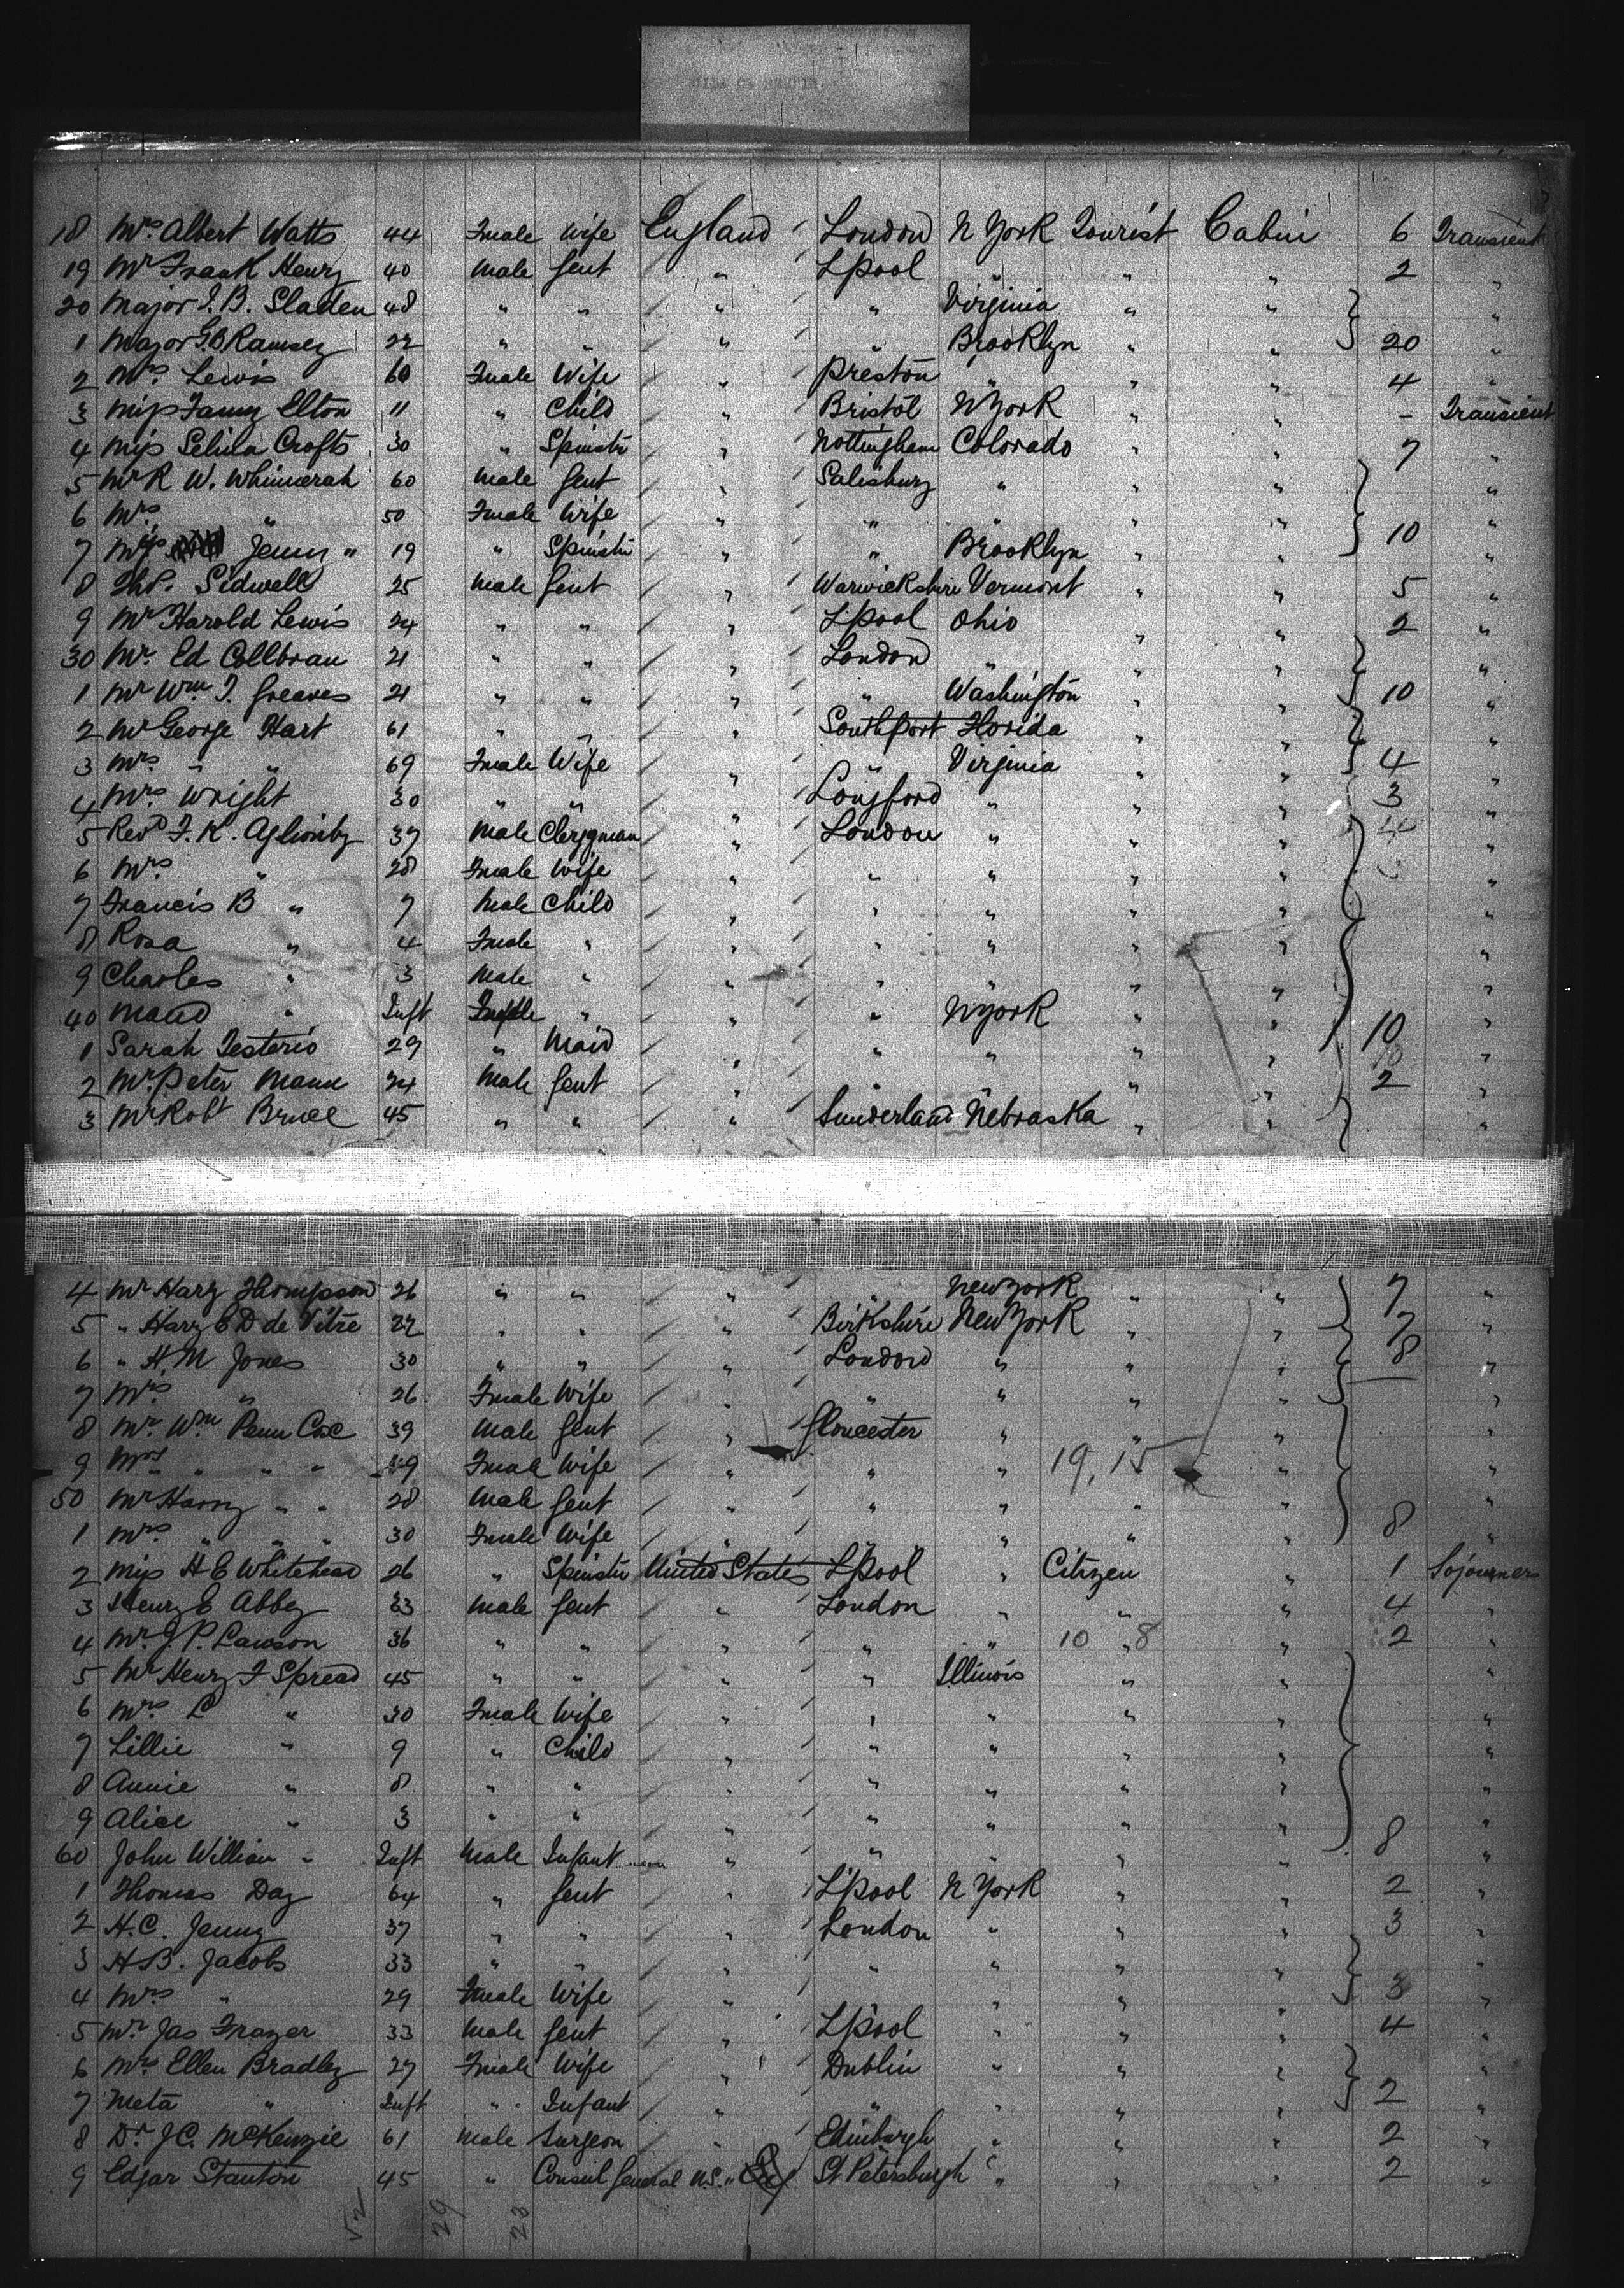 18 Mrs. Albert Watts 44 Fmale Wife England London N York Tourist Cabin 6 Transient
19 Mr Frank Henry 40 Male Gent " L'pool " " " 2 "
20 Major J. B. Sladen 48 " " " " Virginia " " "
1 Major G.B. Ramsey 22 " " " " Brooklyn " " 20 "
2 Mrs. Lewis 60 Fmale Wife " Preston " " " 4 "
3 Miss Fanny Elton 11 " Child " Bristol N York " " - Transient
4 Miss Selina Crofts 30 " Spinstr " Nottingham Colorado " " 7 "
5 Mr R W. Whinnerah 60 Male Gent " Salisbury " " " "
6 Mrs " 50 Fmale Wife " " " " " "
7 Miss Jenny " 19 " Spinstr " " Brooklyn " " 10 "
8 Sidwell 25 Male Gent " Warwickshire Vermont " " 5 "
9 Mr Harold Lewis 24 " " " L'pool Ohio " " 2 "
30 Mr. Ed Collbran 21 " " " London " " " "
1 Mr Wm J. Greaves 21 " " " " Washington " " 10 "
2 Mr George Hart 61 " " " Southport Florida " " "
3 Mrs " " 69 Fmale Wife " " Virginia " " 4 "
4 Mrs. Wright 30 " " " Longford " " " 3 "
5 Revd F. K. Aglionby 37 Male Clergyman " London " " " 4 "
6 Mrs. " 28 Fmale Wife " " " " " "
7 Francis B " 7 Male Child " " " " " "
8 Rosa " 4 Fmale " " " " " " "
9 Charles " 3 Male " " " " " " "
40 Maud " Inft Fmale " " " N York " " "
1 Sarah Testerio 29 " Maid " " " " " 10 "
2 Mr. Peter Mann 24 Male Gent " " " " " 2 "
3 Mr Robt Bruce 45 " " " Sunderland Nebraska " " "
4 Mr Harry Thompson 26 " " " " New York " " 7 "
5 " Harry E D de Vitre 22 " " " Birkshire New York " " 7 "
6 " H M Jones 30 " " " London " " " 8 "
7 Mrs " 26 Fmale Wife " " " " " "
8 Mr. Wm Penn Cox 39 Male Gent " Gloucester " " " "
9 Mrs " " " 39 Fmale Wife " " " 19, 15 " "
50 Mr Harry " " 28 Male Gent " " " " " "
1 Mrs " " " 30 Fmale Wife " " " " " 8 "
2 Miss H E Whitehead 26 " Spinstr United States L'pool " Citizen " 1 Sojourners
3 Henry E Abbey 33 Male Gent " London " " " 4 "
4 Mr. J. P. Lawson 36 " " " " " 10 " 8 " 2 "
5 Mr Henry F Spread 45 " " " " Illinois " " "
6 Mrs L " 30 Fmale Wife " " " " " "
7 Lillie " 9 " Child " " " " " "
8 Annie " 8 " " " " " " " "
9 Alice " 3 " " " " " " " "
60 John William " Inft Male Infant " " " " " 8 "
1 Thomas Day 64 " Gent " L'pool N York " " 2 "
2 H. C. Jenny 37 " " " London " " " 3 "
3 H B. Jacobs 33 " " " " " " " "
4 Mrs " 29 Fmale Wife " " " " " 3 "
5 Mr. Jas Frazer 33 Male Gent " L'pool " " " 4 "
6 Mrs Ellen Bradley 27 Fmale Wife " Dublin " " " "
7 Meta " Inft " Infant " " " " " 2 "
8 Dr. J C. McKenzie 61 Male Surgeon " Edinburgh " " " 2 "
9 Edgar Stanton 45 " Consul General U.S. " St Petersburgh " " " 2 "
52 29 23